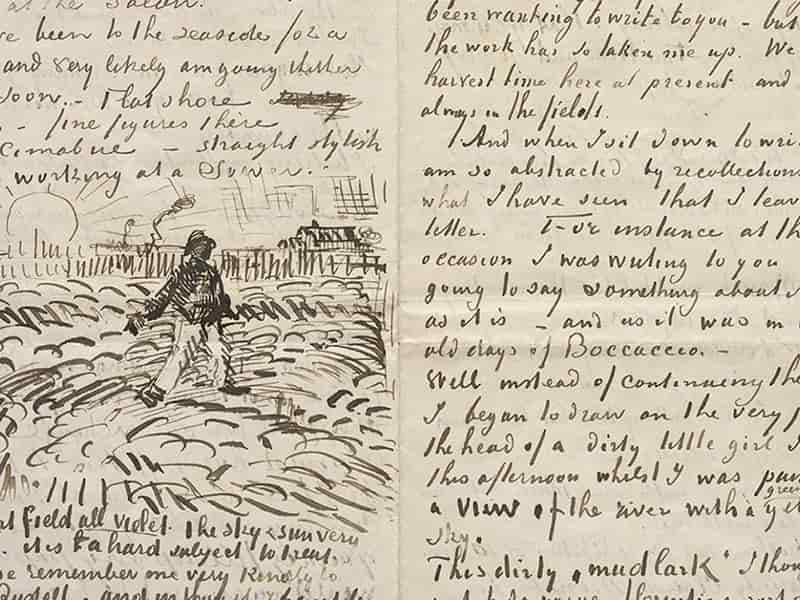 at the Salon.
ve been to the seaside for a
and very likely am going thither
soon. - Flat shore
- fine figures there
Cimabue - straight stylish
working at a Sower.
at field all violet. the sky & sun very
it is a hard subject to treat.
se remember me very kindly to
Russell - and in
been wanting to write to you - but
the work has so taken me up. We
harvest time here at present and
always in the fields.
And when I sit down to write
am so abstracted by recollections
what I have seen that I leave
letter. For instance at the
occasion I was writing to you
going to say something about
as it is - and as it was in
old days of Boccaccio. -
Well instead of continuing the
I began to draw on the very
the head of a dirty little girl I
this afternoon whilst I was
green
a view of the river with a
sky.
This dirty „mudlark" I thou